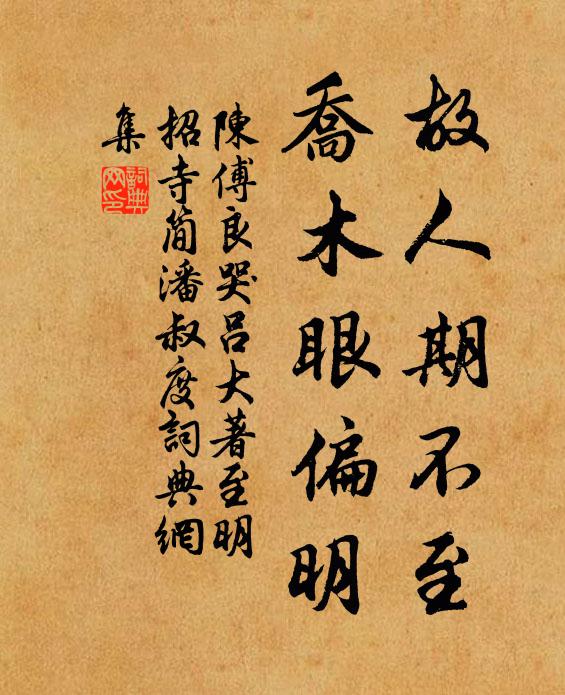 故人期不至
喬木眼偏明
陳傅良哭呂大著至明
招寺簡潘叔度詞典網
集
詞典
网印